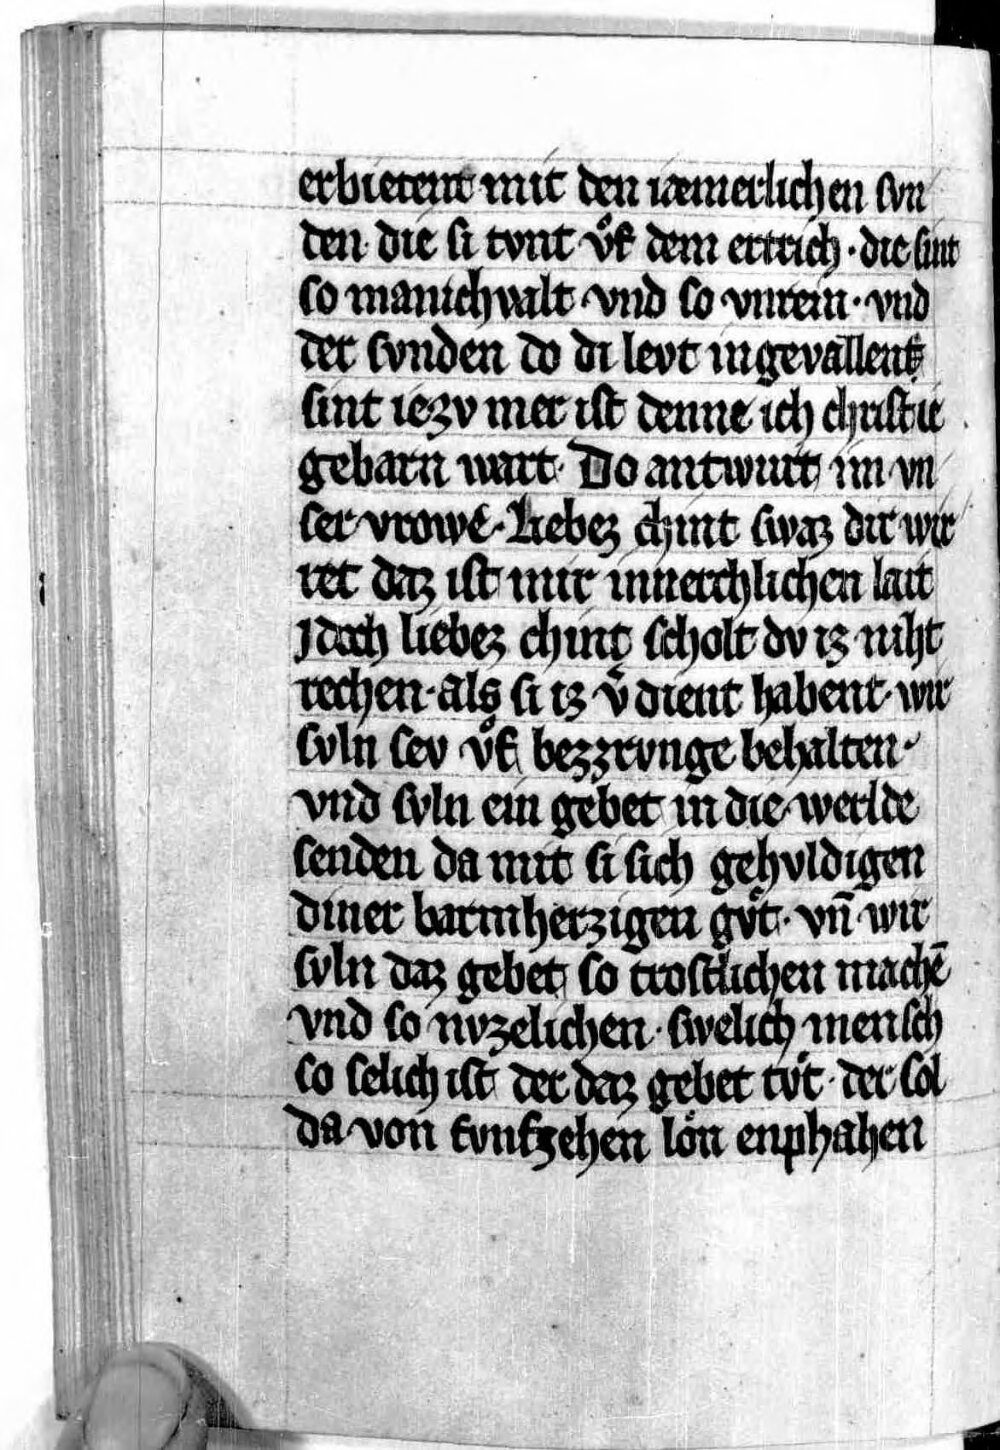 erbietent mit den iæmerlichen svn
den die si tvnt vͦf dem ertrich · die sint
so manichvalt · vnd so vnrein · vnd
der svnden do di levt in gevallent
sint iezv mer ist denne ich christ ie
gebarn wart · Do antwurt im vn
ser vrowe · Liebez chint swaz dir wir
ret daz ist mir innerchlichen lait
jdoch liebez chint scholt dv iz niht
rechen · als si iz v̓dient habent · wir
svln sev vͦf bezzrvnge behalten ·
vnd svln ein gebet in die werlde
senden da mit si sich gehvldigen
diner barmherzigen gvͤt · vn̄ wir
svln daz gebet so trostlichen machē
vnd so nvzelichen · swelich mensch
so selich ist der daz gebet tvͦt · der sol
da von fvnfzehen loͤn enphahen